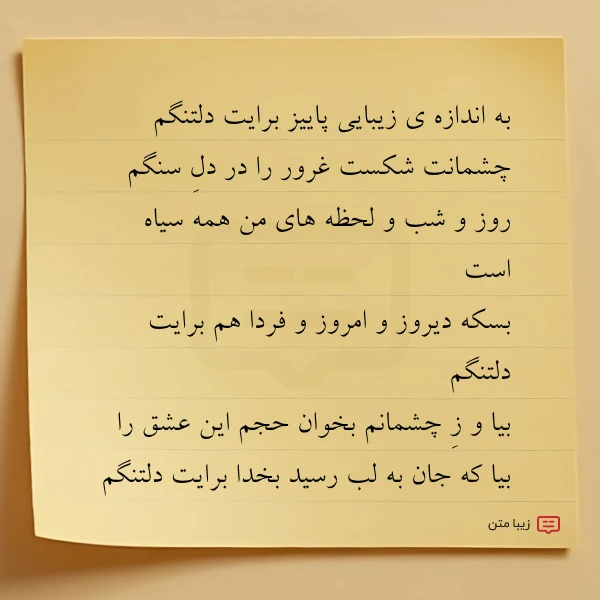 به اندازه ی زیبایی پاییز برایت دلتنگم
چشمانت شکست غرور را در دلِ سنگم
روز و شب و لحظه های من همه سیاه
است
بسکه دیروز و امروز و فردا هم برایت
دلتنگم
بیا و زِ چشمانم بخوان حجم این عشق را
بیا که جان به لب رسید بخدا برایت دلتنگم
زیبا متن